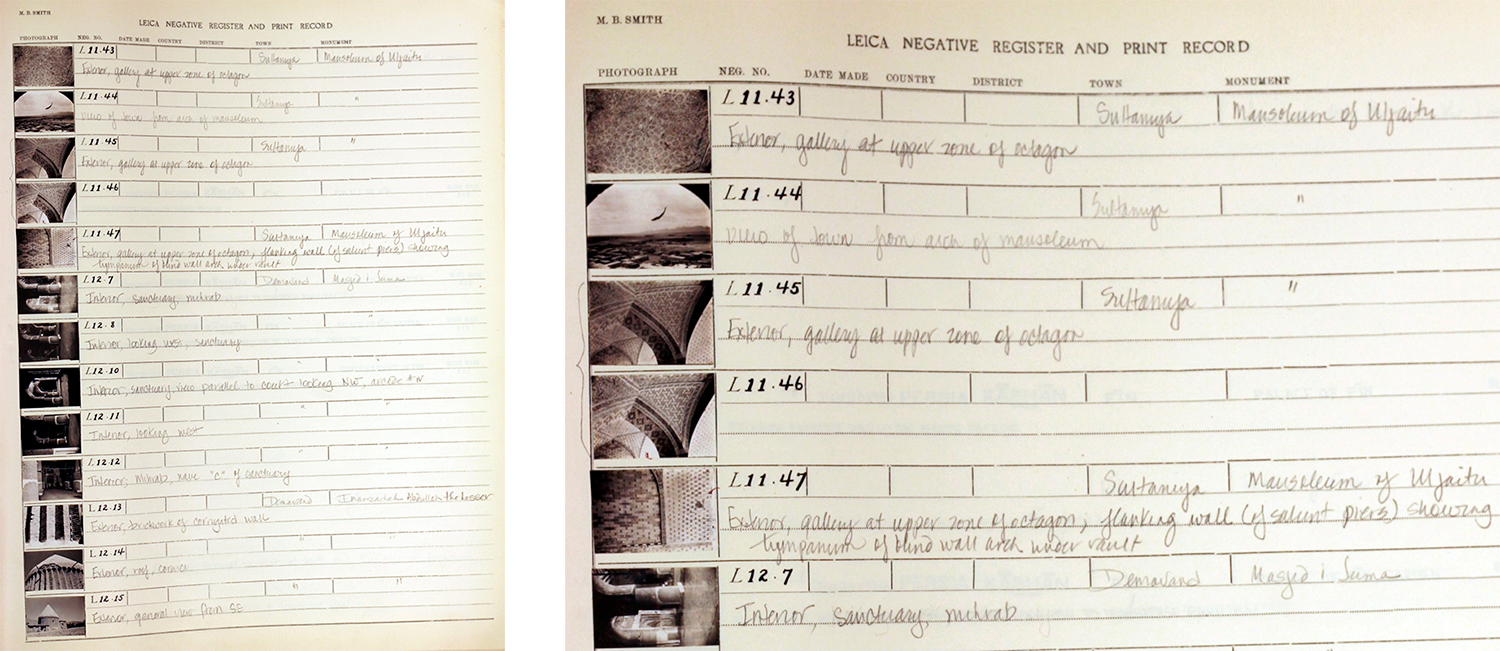 M. B. SMITH
LEICA NEGATIVE REGISTER AND PRINT RECORD
PHOTOGRAPH NEG. NO. DATE MADE COUNTRY DISTRICT TOWN MONUMENT
L 11.43 Sultaniya Mausoleum of Uljaitu
Exterior, gallery at upper zone of octagon
L 11.44 Sultaniya "
View of town from arch of mausoleum
L 11.45 Sultaniya "
Exterior, gallery at upper zone of octagon
L 11.46
L 11.47 Sultaniya Mausoleum of Uljaitu
Exterior, gallery at upper zone of octagon, flanking wall (of salient piers) showing
tympanum of blind wall arch under vault
L 12.7 Demavand Masjid i Juma
Interior, sanctuary, mihrab
L 12.8 " "
Interior, looking west, sanctuary
L 12.10 " "
Interior, sanctuary, view parallel to court looking NW, arcade
L 12.11 " "
Interior, looking west
L 12.12 " "
Interior, Mihrab, nave "c" of sanctuary
L 12.13 Demavand Imamzadeh Abdullah the Lesser
Exterior, brickwork of corrugated wall
L 12.14 " "
Exterior, roof, cornice
L 12.15 " "
Exterior, general view from SE
M. B. SMITH
LEICA NEGATIVE REGISTER AND PRINT RECORD
PHOTOGRAPH NEG. NO. DATE MADE COUNTRY DISTRICT TOWN MONUMENT
L 11.43 Sultaniya Mausoleum of Uljaitu
Exterior, gallery at upper zone of octagon
L 11.44 Sultaniya "
View of town from arch of mausoleum
L 11.45 Sultaniya "
Exterior, gallery at upper zone of octagon
L 11.46
L 11.47 Sultaniya Mausoleum of Uljaitu
Exterior, gallery at upper zone of octagon, flanking wall (of salient piers) showing
tympanum of blind wall arch under vault
L 12.7 Demavand Masjid i Juma
Interior, sanctuary, mihrab